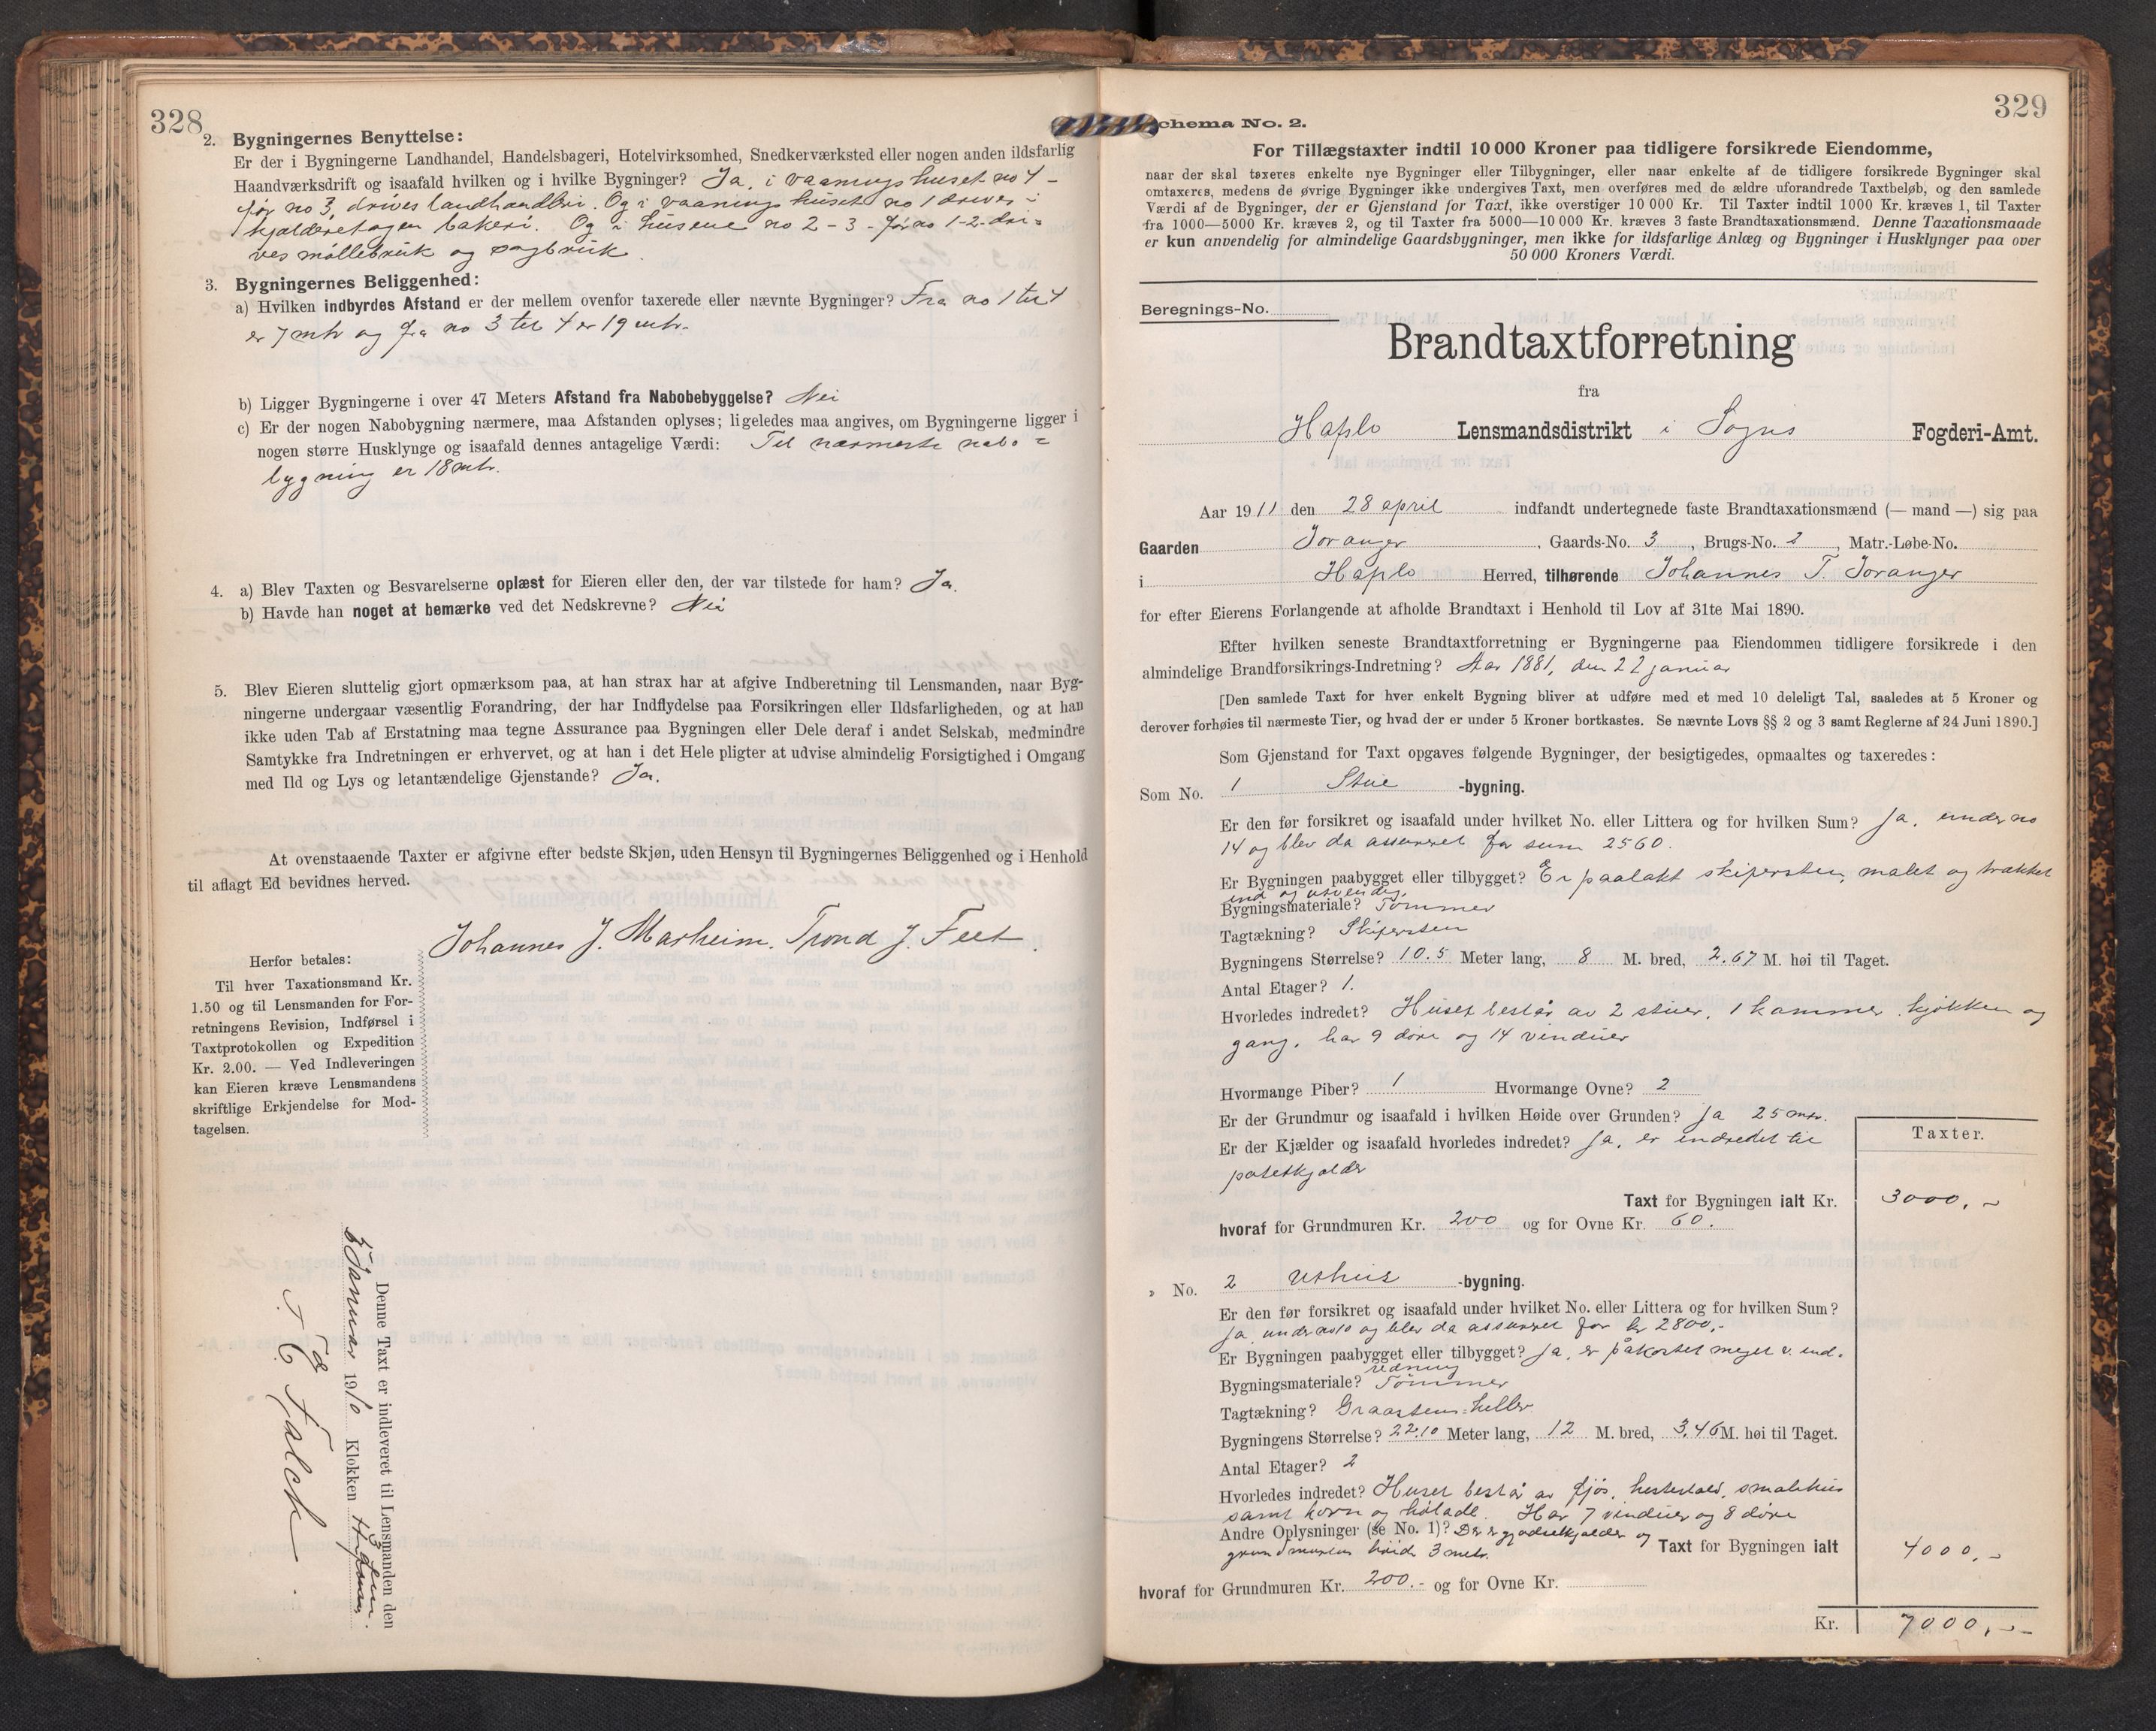 328
2. Bygningernes Benyttelse:
Er der i Bygningerne Landhandel, Handelsbageri, Hotelvirksomhed, Snedkerværksted eller nogen anden ildsfarlig
Haandværksdrift og isaafald hvilken og i hvilke Bygninger? Ja, i vaaningshuset no 4 -
før no 3, drives landhandleri. Og i vaaningshuset no 1 drives i
kjælderetagen bakeri. Og i husene no 2 - 3 - før no 1-2- dri=
ves møllebruk og sagbruk
3. Bygningernes Beliggenhed:
a) Hvilken indbyrdes Afstand er der mellem ovenfor taxerede eller nævnte Bygninger? Fra no 1 til 4
er 7 mtr og fra no 3 til 4 er 19 mtr.
b) Ligger Bygningerne i over 47 Meters Afstand fra Nabobebyggelse? Nei
c) Er der nogen Nabobygning nærmere, maa Afstanden oplyses; ligeledes maa angives, om Bygningerne ligger i
nogen større Husklynge og isaafald dennes antagelige Værdi: Til nærmeste nabo=
bygning er 18 mtr.
4. a) Blev Taxten og Besvarelserne oplæst for Eieren eller den, der var tilstede for ham? Ja.
b) Havde han noget at bemærke ved det Nedskrevne? Nei
5. Blev Eieren sluttelig gjort opmærksom paa, at han strax har at afgive Indberetning til Lensmanden, naar Byg-
ningerne undergaar væsentlig Forandring, der har Indflydelse paa Forsikringen eller Ildsfarligheden, og at han
ikke uden Tab af Erstatning maa tegne Assurance paa Bygningen eller Dele deraf i andet Selskab, medmindre
Samtykke fra Indretningen er erhvervet, og at han i det Hele pligter at udvise almindelig Forsigtighed i Omgang
med Ild og Lys og letantændelige Gjenstande? Ja.
At ovenstaaende Taxter er afgivne efter bedste Skjøn, uden Hensyn til Bygningernes Beliggenhed og i Henhold
til aflagt Ed bevidnes herved.
Johannes J. Marheim. Trond J. Feet.
Herfor betales:
Til hver Taxationsmand Kr.
1.50 og til Lensmanden for For-
retningens Revision, Indførsel i
Taxtprotokollen og Expedition
Kr. 2.00. — Ved Indleveringen
kan Eieren kræve Lensmandens
skriftlige Erkjendelse for Mod-
tagelsen.
Denne Taxt er indleveret til Lensmanden den
Januar 1910 Klokken
Falch.
329
chema No. 2.
For Tillægstaxter indtil 10 000 Kroner paa tidligere forsikrede Eiendomme,
naar der skal taxeres enkelte nye Bygninger eller Tilbygninger, eller naar enkelte af de tidligere forsikrede Bygninger skal
omtaxeres, medens de øvrige Bygninger ikke undergives Taxt, men overføres med de ældre uforandrede Taxtbeløb, og den samlede
Værdi af de Bygninger, der er Gjenstand for Taxt, ikke overstiger 10 000 Kr. Til Taxter indtil 1000 Kr. kræves 1, til Taxter
fra 1000—5000 Kr. kræves 2, og til Taxter fra 5000—10 000 Kr. kræves 3 faste Brandtaxationsmænd. Denne Taxationsmaade
er kun anvendelig for almindelige Gaardsbygninger, men ikke for ildsfarlige Anlæg og Bygninger i Husklynger paa over
50 000 Kroners Værdi.
Beregnings-No.
Brandtaxtforretning
fra
Haflo Lensmandsdistrikt i Sogns Fogderi-Amt.
Aar 1911 den 28 april indfandt undertegnede faste Brandtaxationsmænd (— mand —) sig paa
Gaarden Joranger, Gaards-No. 3, Brugs-No. 2, Matr.-Løbe-No.
i Haflo Herred, tilhørende Johannes T. Joranger
for efter Eierens Forlangende at afholde Brandtaxt i Henhold til Lov af 31te Mai 1890.
Efter hvilken seneste Brandtaxtforretning er Bygningerne paa Eiendommen tidligere forsikrede i den
almindelige Brandforsikrings-Indretning? Aar 1881, den 22 januar
[Den samlede Taxt for hver enkelt Bygning bliver at udføre med et med 10 deleligt Tal, saaledes at 5 Kroner og
derover forhøies til nærmeste Tier, og hvad der er under 5 Kroner bortkastes. Se nævnte Lovs §§ 2 og 3 samt Reglerne af 24 Juni 1890.]
Som Gjenstand for Taxt opgaves følgende Bygninger, der besigtigedes, opmaaltes og taxeredes:
Som No. 1 Stue -bygning.
Er den før forsikret og isaafald under hvilket No. eller Littera og for hvilken Sum? Ja, under no
14 og blev da assureret for sum 2560.
Er Bygningen paabygget eller tilbygget? Er paalakt skifersten, malet og trækket
ind og utvendig.
Bygningsmateriale? Tømmer
Tagtækning? Skifersten
Bygningens Størrelse? 10.5 Meter lang, 8 M. bred, 2.67 M. høi til Taget.
Antal Etager? 1.
Hvorledes indredet? Huset består av 2 stuer, 1 kammer, kjøkken og
gang, har 9 døre og 14 vinduer
Hvormange Piber? 1 Hvormange Ovne? 2
Er der Grundmur og isaafald i hvilken Høide over Grunden? Ja 25 mtr.
Er der Kjælder og isaafald hvorledes indredet? Ja, er indredet til
potetkjælder
Taxter.
Taxt for Bygningen ialt Kr. 3000,-
hvoraf for Grundmuren Kr. 200 og for Ovne Kr. 60.
» No. 2 Uthus -bygning.
Er den før forsikret og isaafald under hvilket No. eller Littera og for hvilken Sum?
Ja under no 10 og blev da assureret for kr 2800,-
Er Bygningen paabygget eller tilbygget? Ja, er påkostet meget v. ind-
redning
Bygningsmateriale? Tømmer
Tagtækning? Graastens-heller
Bygningens Størrelse? 22.10 Meter lang, 12 M. bred, 3,46 M. høi til Taget.
Antal Etager? 2
Hvorledes indredet? Huset består av fjøs, hestestald, smalehus
samt korn og hølade. Har 7 vinduer og 8 døre
Andre Oplysninger (se No. 1)? Der er gjødselkjælder og
grundmurens høide 3 metr. Taxt for Bygningen ialt 4000,-
hvoraf for Grundmuren Kr. 200.- og for Ovne Kr.
Kr. 7000,--